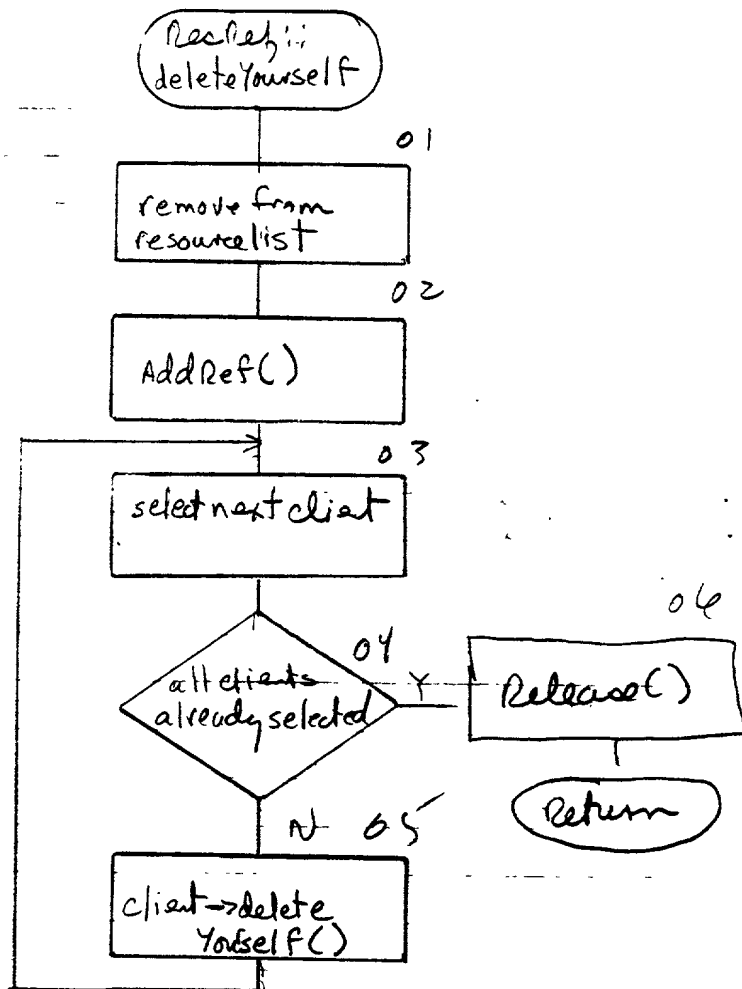 deleteYourself
01
remove from
resourcelist
02
AddRef()
03
select next client
04
all clients
already selected
Y
06
Release()
Return
N 05
client->delete
Yourself()